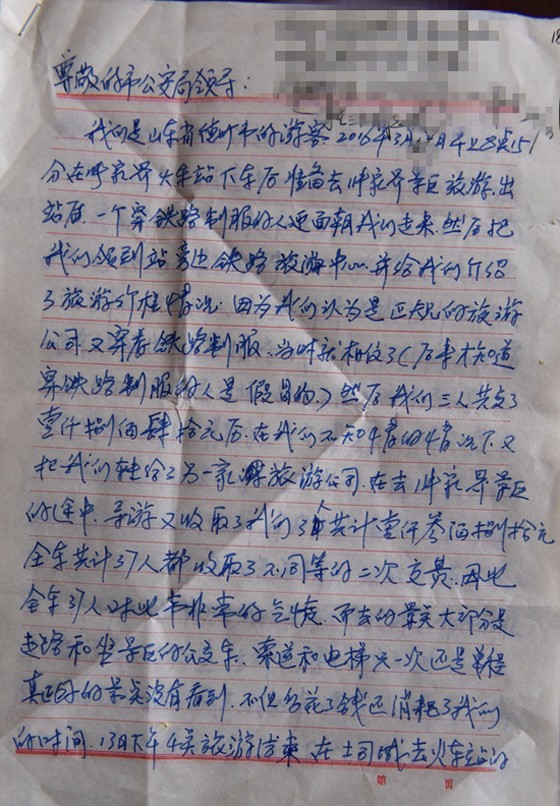 18
尊敬的市公安局领导:
我们是山东省德州市的游客. 2016年3月 日早上8点15
分在张家界火车站下车后准备去张家界景区旅游. 出
站后. 一个穿铁路制服的人迎面朝我们走来. 然后把
我们领到站旁边铁路旅游中心. 并给我们介绍
了旅游价格情况. 因为我们认为是正规的旅游
公司. 又穿着铁路制服. 当时就相信了(后来才知道
穿铁路制服的人是假冒的.) 然后我们三人共交了
壹仟捌佰肆拾元后. 在我们不知情的情况下. 又
把我们转给了另一家旅游公司. 在去张家界景区
的途中. 导游又收取了我们3人共计壹仟叁佰捌拾元
全车共计37人都收取了不同等的二次交费. 因此
全车37人对此事非常的气愤. 而去的景点大部分是
走路和坐景区的公交车. 索道和电梯只一次还是单程
真正好的景点没有看到. 不但多花了钱还消耗了我们
的时间. 13日下午4点旅游结束. 在土司城去火车站的
第 页